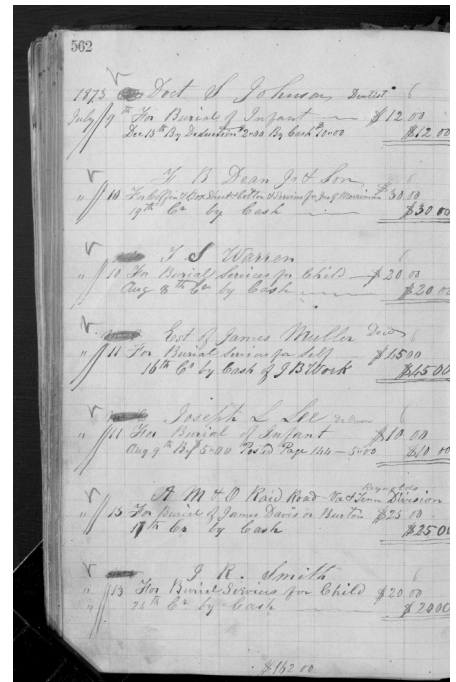 562
1873 Doct S Johnson Dentist
July 9th For Burial of Infant $12.00
Dec 13th By Deduction 2.00 By Cash $10.00 $12.00
B Dean Jr & Son
" 10 For Coffin & Box & Services for $30.00
19th Cr by Cash $30.00
T S Warren
" 10 For Burial Services for Child $20.00
Aug 8th Cr by Cash $20.00
Est of James Muller Decd
" 11 For Burial Services for Self $45.00
16th Cr by Cash of J B Work $45.00
Joseph L Lee
" 11 For Burial of Infant $10.00
Aug 9th By $5.00 Posted Page 144 — 5.00 $10.00
Reynolds
A M & O Raid Road Va & Tenn Division
" 13 For Burial of James Davis or Burton $25.00
17th Cr by Cash $25.00
J R. Smith
" 13 For Burial Services for Child $20.00
" 25th Cr by Cash $20.00
$162.00